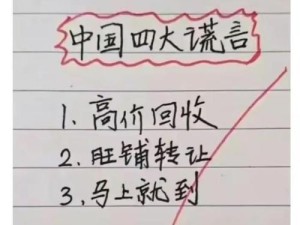 中国四大谎言
1. 高价回收
2. 旺铺转让
3, 马上就到